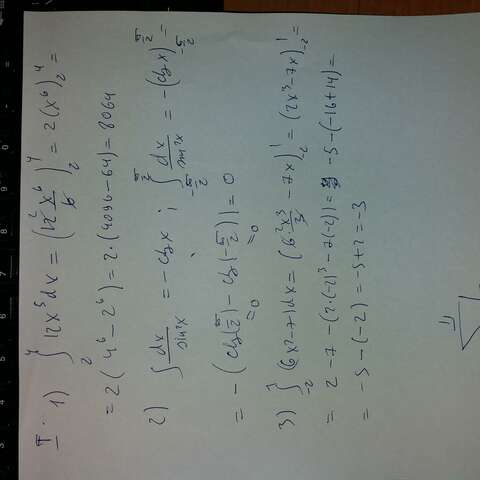 I. 1) ∫₂⁴ 12x⁵dx = (12 x⁶/6)₂⁴ = 2(x⁶)₂⁴ =
= 2(4⁶ - 2⁶) = 2·(4096-64) = 8064
2) ∫ dx/sin²x = -ctg x ; ∫ dx/sin²x = -(ctg x) =
= -(ctg(π/2) - ctg(-π/2)) = 0
=0 =0
3) ∫₋₂¹ (6x²-7)dx = (6 x³/3 - 7x)₋₂¹ = (2x³-7x)₋₂¹ =
= 2 - 7 - (2·(-2)³ - 7·(-2)) = -5-(-16+14) =
= -5-(-2) = -5+2 = -3